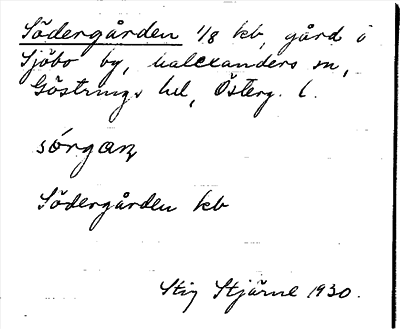 Södergården 1/8 kb, gård i
Sjöbo by, Malexanders sn,
Göstrings hd, Österg. l.
sórgan
Södergården kb
Stig Stjärne 1930.